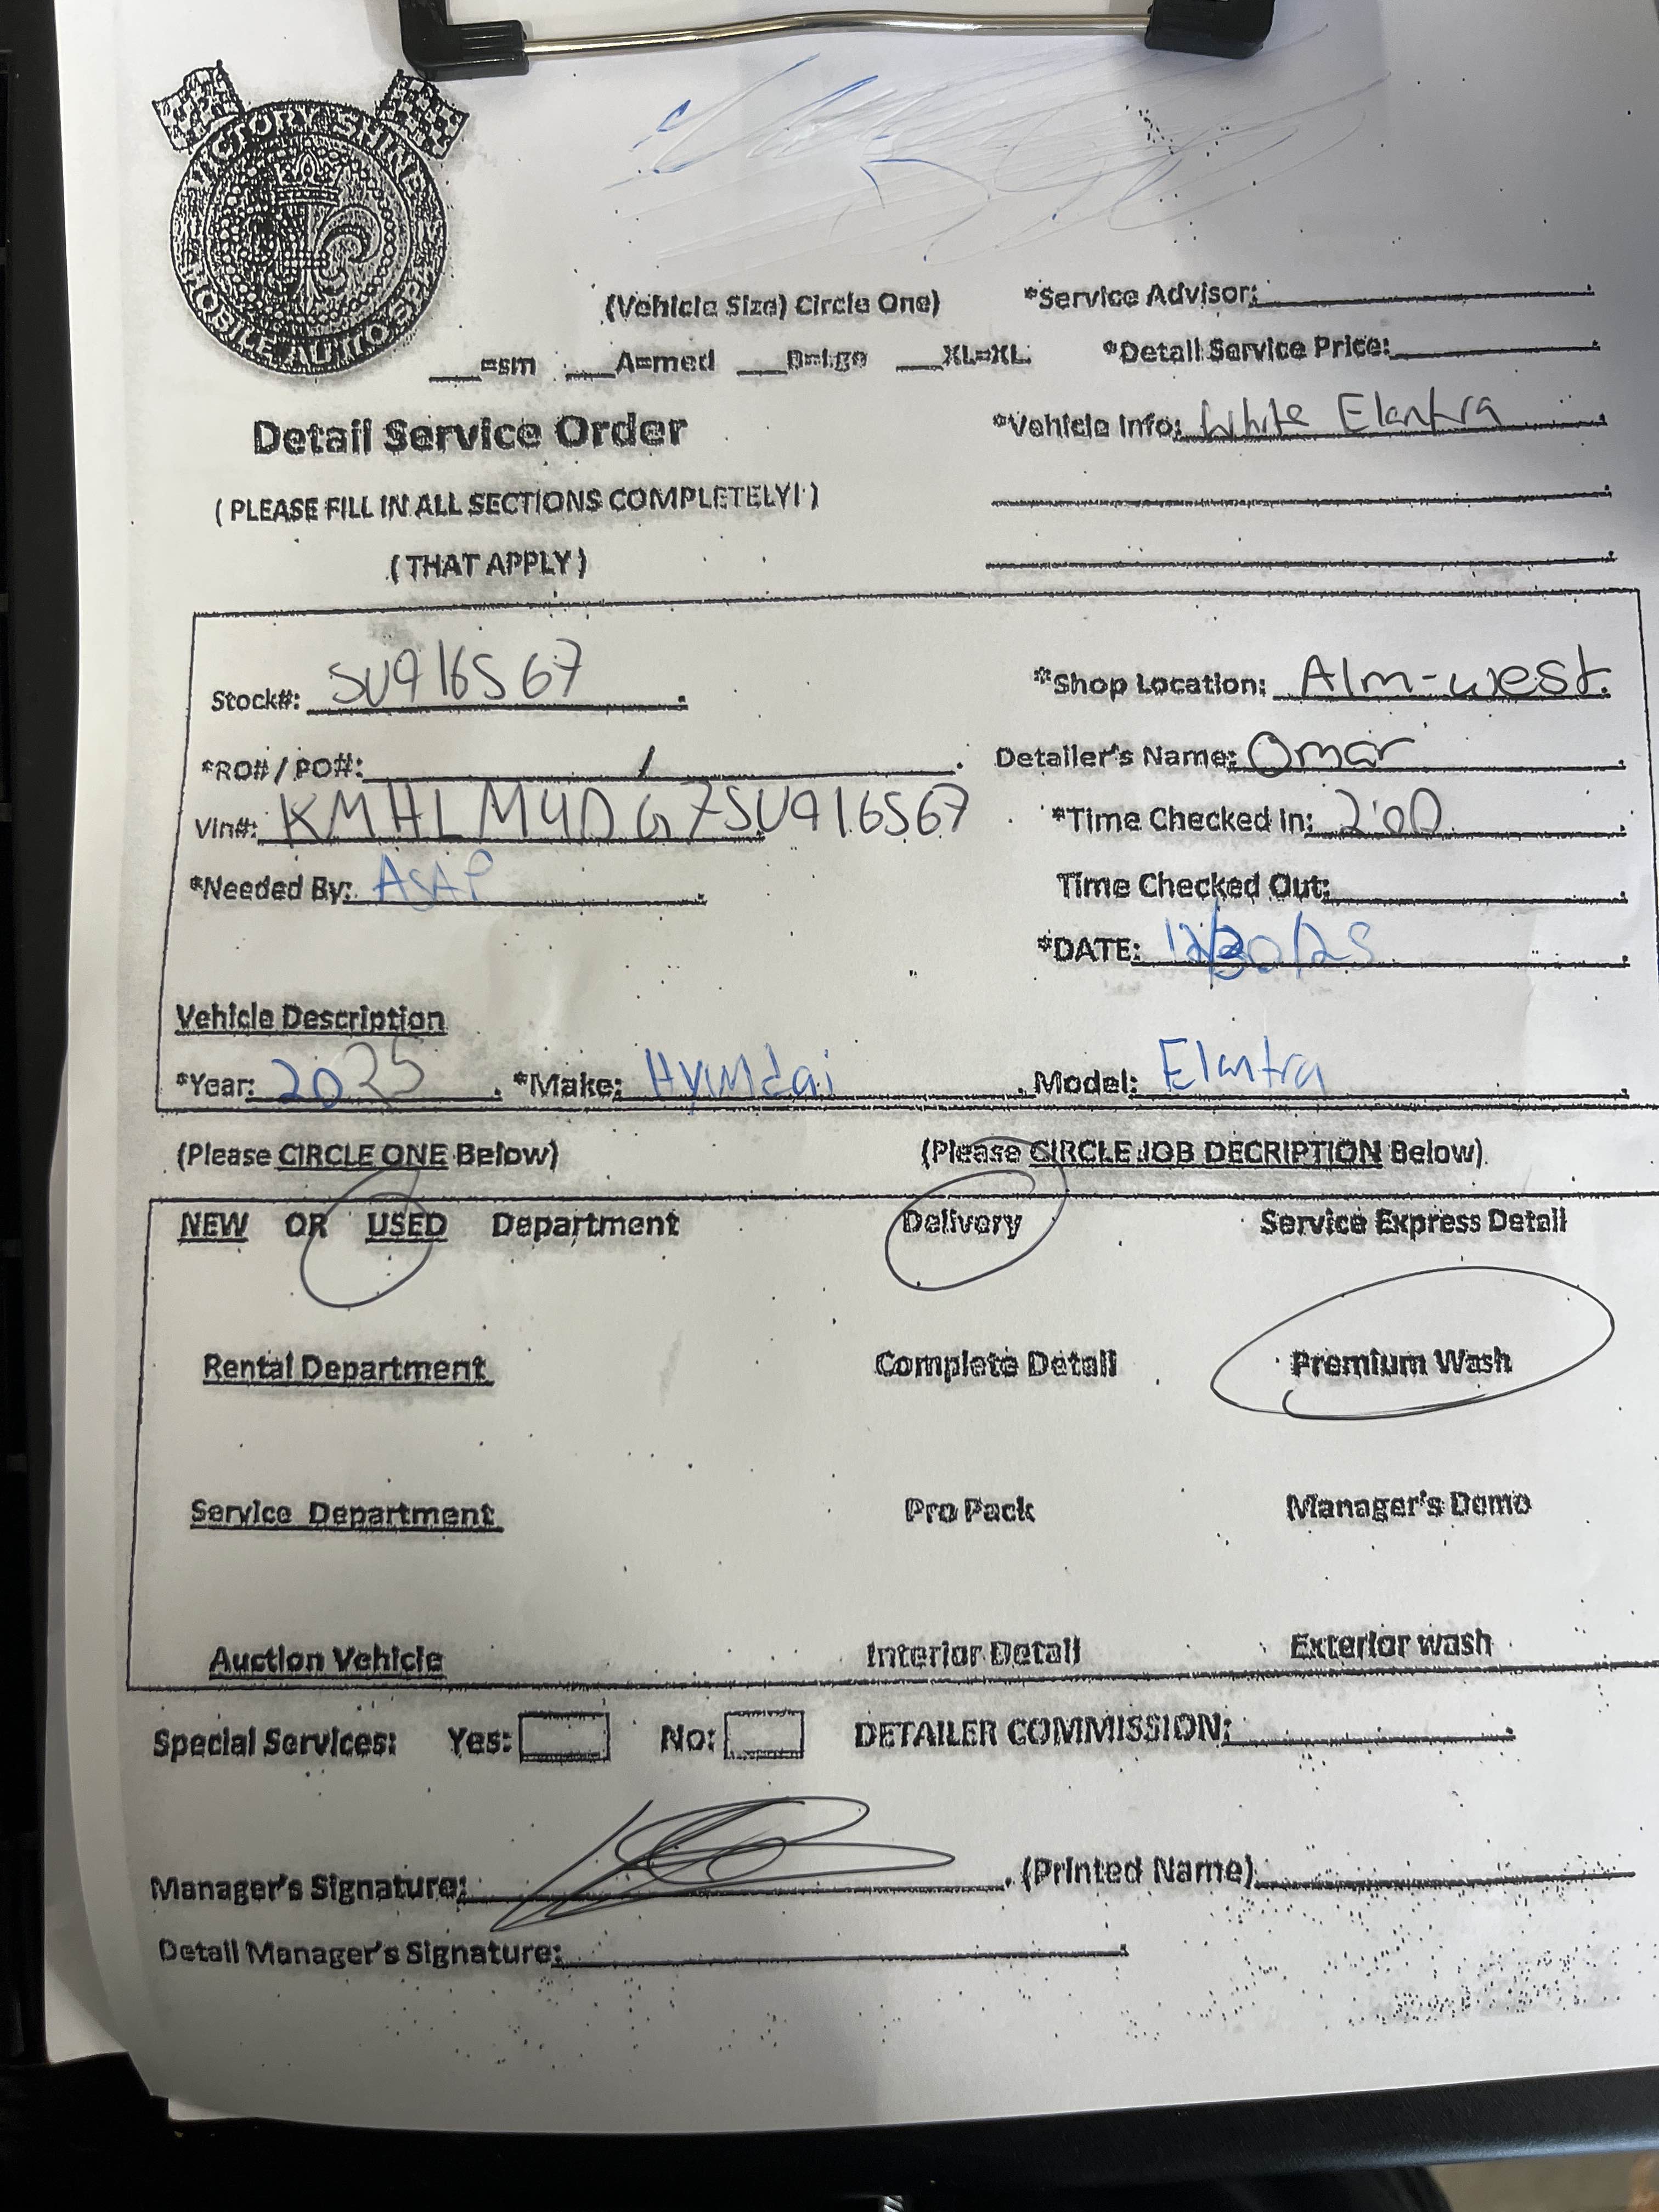 VICTORY SHINE
MOBILE AUTO SPA
(Vehicle Size) Circle One) *Service Advisor:
___=sm ___A=med ___B=Lge ___XL=XL *Detail Service Price:
Detail Service Order *Vehicle Info: White Elantra
( PLEASE FILL IN ALL SECTIONS COMPLETELY! )
( THAT APPLY )
Stock#: SU916567 *Shop Location: Alm-west
*RO# / PO#: / Detailer's Name: Omar
Vin#: KMHLM4DG7SU916567 *Time Checked In: 2:00
*Needed By: ASAP Time Checked Out:
*DATE: 12/30/25
Vehicle Description
*Year: 2025 *Make: Hyundai Model: Elantra
(Please CIRCLE ONE Below) (Please CIRCLE JOB DECRIPTION Below)
NEW OR USED Department Delivery Service Express Detail
Rental Department Complete Detail Premium Wash
Service Department Pro Pack Manager's Demo
Auction Vehicle Interior Detail Exterior wash
Special Services: Yes: No: DETAILER COMMISSION:
Manager's Signature: (Printed Name)
Detail Manager's Signature: